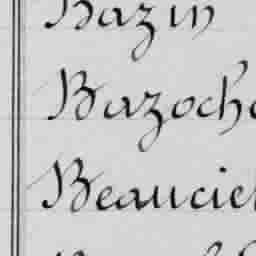 Bazin
Bazoch
Beaucie